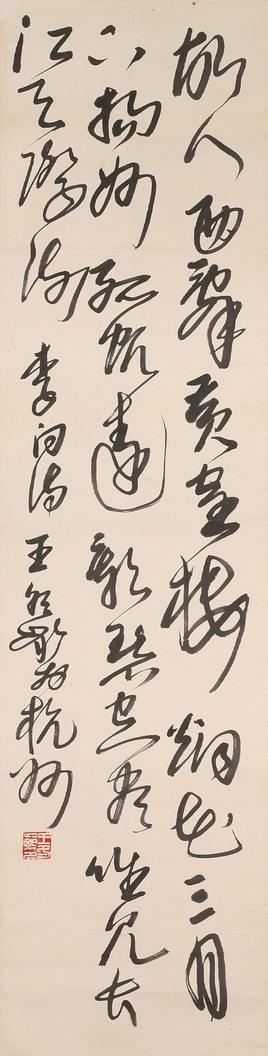 故人西辭黃鶴樓烟花三月
下揚州孤帆遠影碧空盡唯見長
江天際流 李白詩 王冬齡於杭州